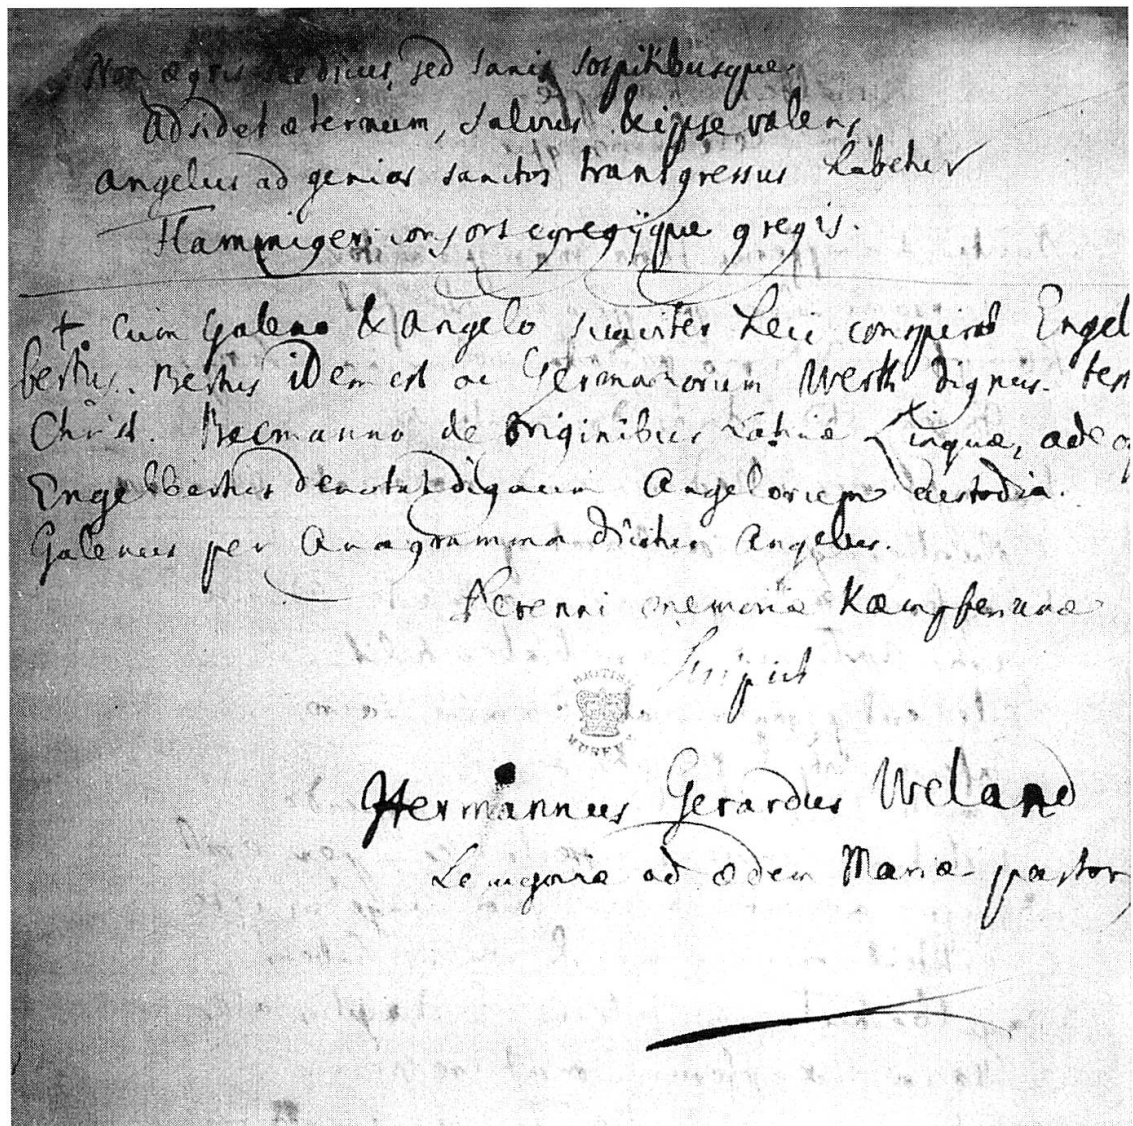 Non ægris Medicus, sed sanis sospitibusque
Adsidet æternum, salvus & ipse valens
Angelus ad genios sanctos transgressus habetur
Flammigeri consors egregÿque gregis.
+. Cum Galeno & Angelo suaviter heic conspirat Engel
bertus. Bertus idem est ac Germanorum Werth dignus. test
Christ. Becmanno de Originibus Latinæ Linguæ, adeoq
Engelbertus denotat dignum Angelorum custodia.
Galenus per Anagramma dicitur Angelus.
Perenni memoriæ Kæmpferianæ
scripsit
BRITISH
MUSEUM
Hermannus Gerardus Weland
Lemgoviæ ad ædem Mariæ pastor